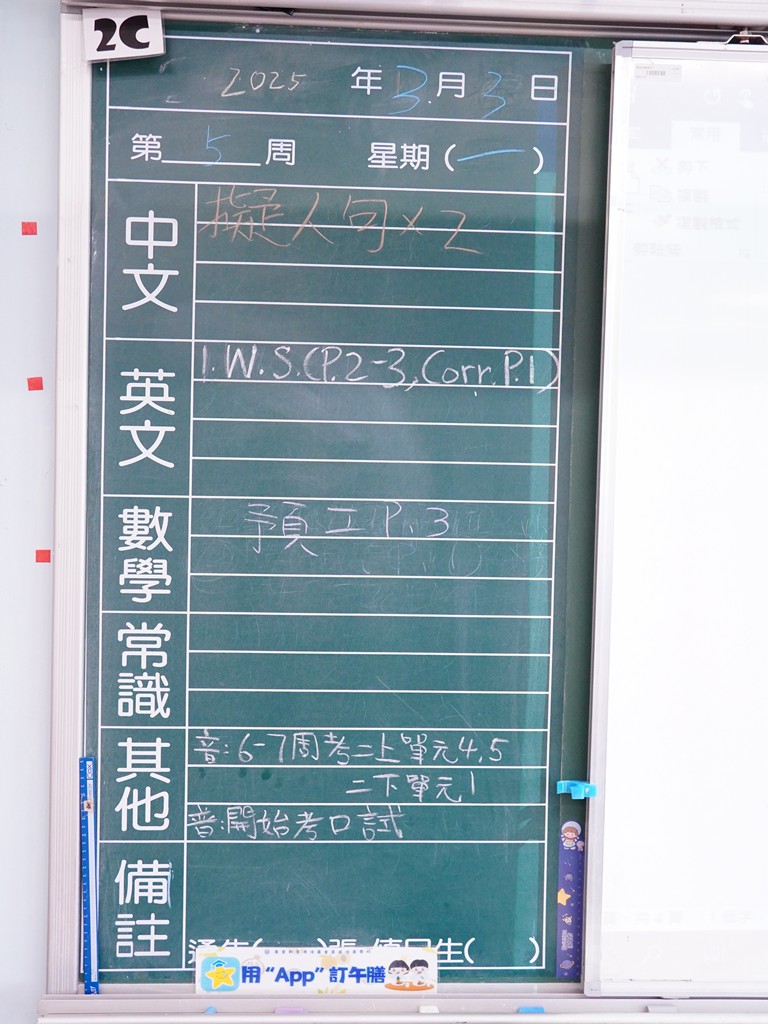 2C
2025 年 3月 3 日
第 5 周 星期(一)
中文
擬人句×2
英文
1. W.S.(P.2-3, Corr. P.1)
數學
預工 P.3
常識
其他
音:6-7周考二上單元4,5
二下單元1
普:開始考口試
備註
生( )
用“App”訂午膳